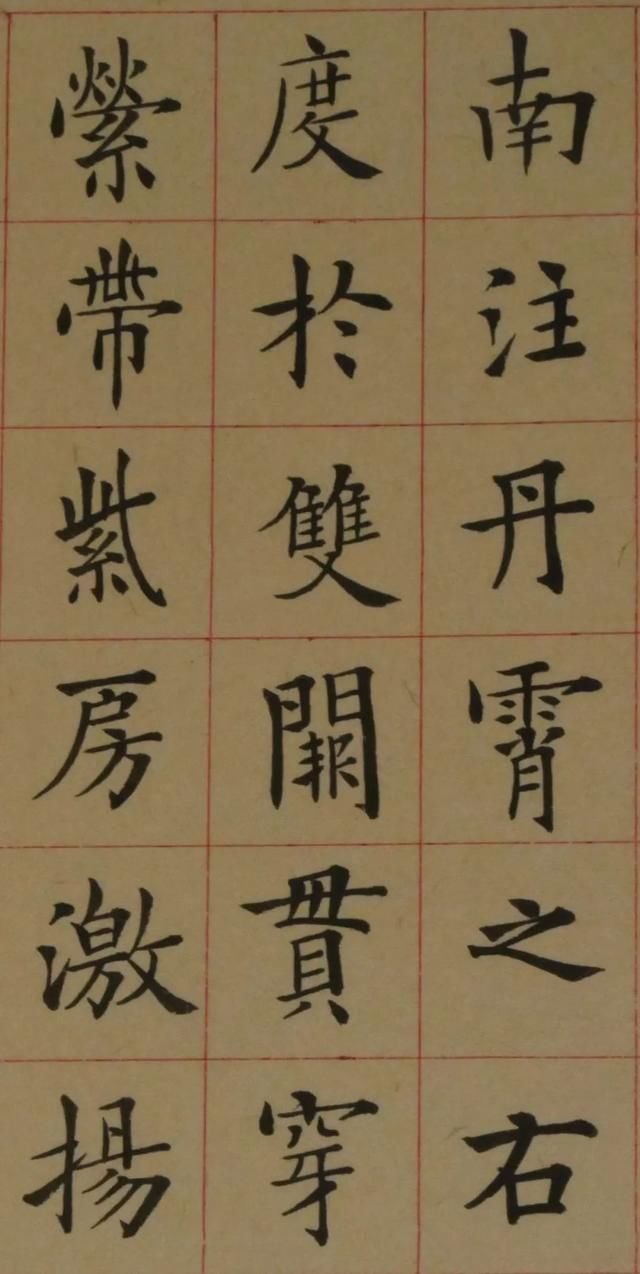 南注丹霄之右
度於雙闕貫穿
縈帶紫房激揚